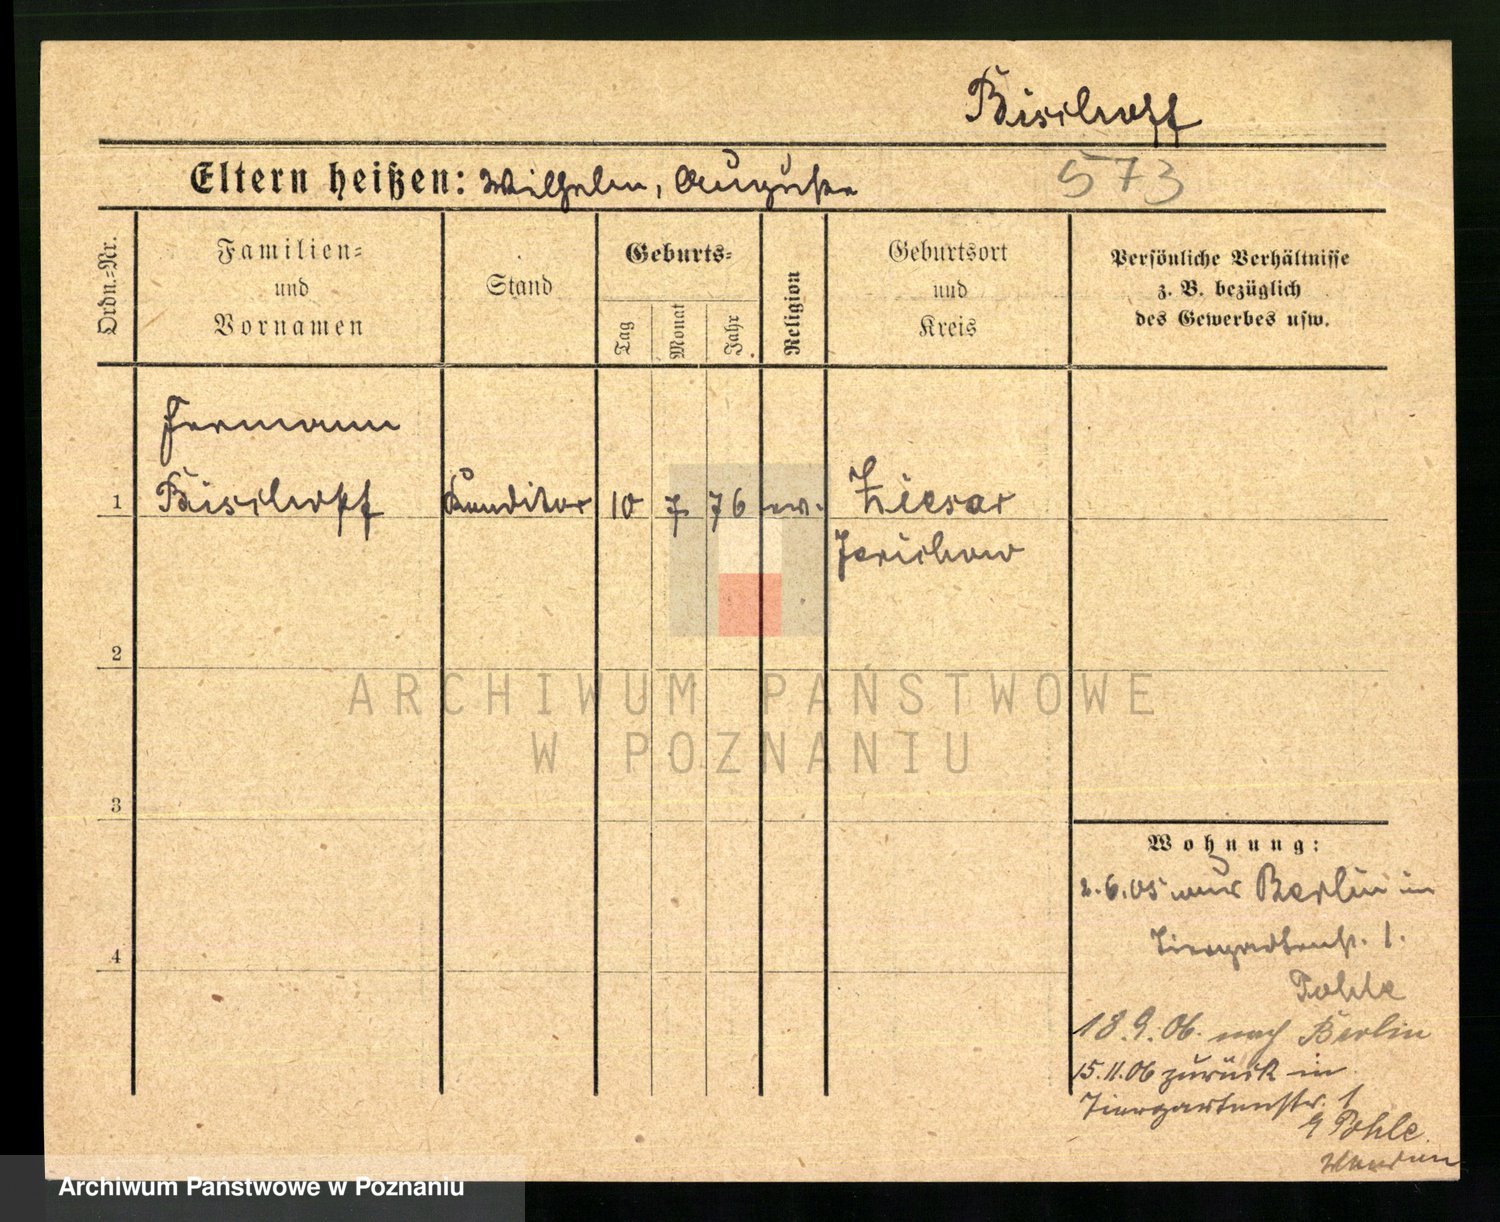 Bischoff
Eltern heißen: Wilhelm, Auguste
573
Ordn.-Nr.
Familien- und Vornamen
Stand
Geburts-
Tag
Monat
Jahr
Religion
Geburtsort und Kreis
Persönliche Verhältnisse
z. B. bezüglich
des Gewerbes usw.
Hermann
1 Bischoff Konditor 10 7 76 ev. Ziesar
Jerichow
2
3
4
Wohnung:
2.6.05 aus Berlin in
Tiergartenstr. 1.
Pohle
18.9.06. nach Berlin
15.11.06 zurück in
Tiergartenstr. 1
Pohle.
ARCHIWUM PAŃSTWOWE
W POZNANIU
Archiwum Państwowe w Poznaniu